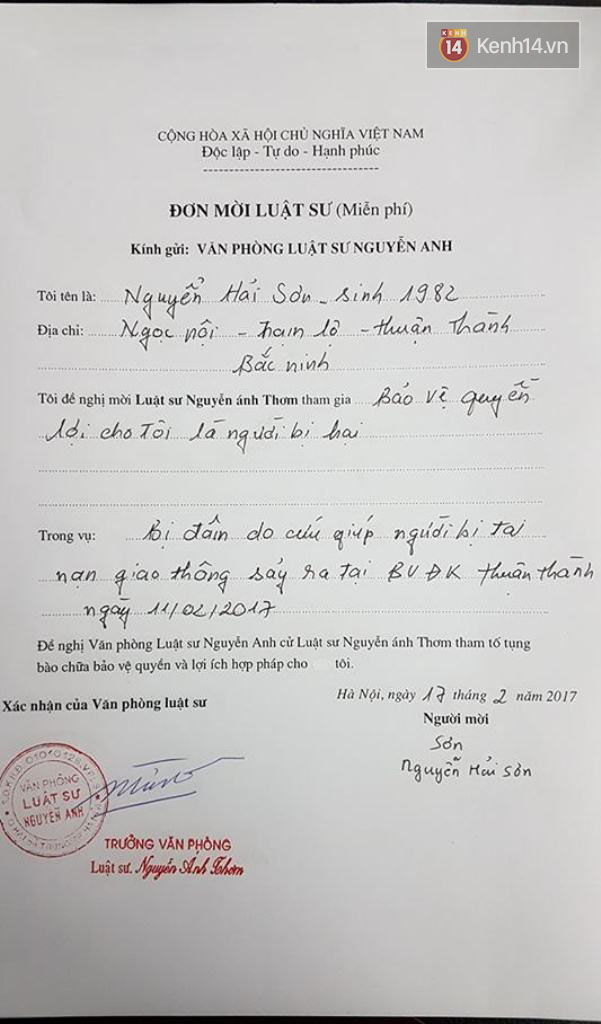 KENH 14 Kenh14.vn
CỘNG HÒA XÃ HỘI CHỦ NGHĨA VIỆT NAM
Độc lập - Tự do - Hạnh phúc
ĐƠN MỜI LUẬT SƯ (Miễn phí)
Kính gửi: VĂN PHÒNG LUẬT SƯ NGUYỄN ANH
Tôi tên là: Nguyễn Hải Sơn - sinh 1982
Địa chỉ: Ngọc nội - Trạm lộ - Thuận Thành
Bắc ninh
Tôi đề nghị mời Luật sư Nguyễn ánh Thơm tham gia Bảo vệ quyền
lợi cho tôi là người bị hại
Trong vụ: Bị đấm do cứu giúp người bị tai
nạn giao thông sảy ra tại BVĐK Thuận thành
ngày 11/02/2017
Đề nghị Văn phòng Luật sư Nguyễn Anh cử Luật sư Nguyễn ánh Thơm tham tố tụng
bào chữa bảo vệ quyền và lợi ích hợp pháp cho tôi.
Hà Nội, ngày 17 tháng 2 năm 2017
Xác nhận của Văn phòng luật sư
Người mời
Sơn
Nguyễn Hải Sơn
VĂN PHÒNG
LUẬT SƯ
NGUYỄN ANH
TRƯỞNG VĂN PHÒNG
Luật sư. Nguyễn Anh Thơm